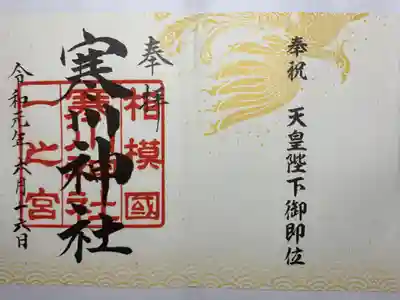 奉祝　天皇陛下御即位
奉拝
寒川神社
相模國
寒川神社
一之宮
令和元年六月十六日